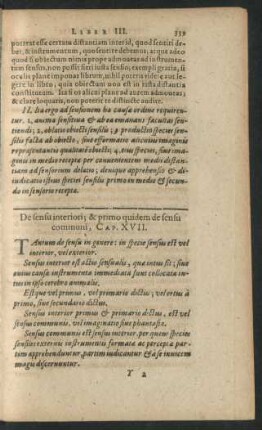 LIBER III. 339
porteat esse certam distantiam interid, quod sentiri de-
bet, & instrumentum, quo sentire debemus; atque adeo
quod si objectum nimis prope admoveas ad instrumen-
tum sensus, non possit fieri ista sensio, exempli gratia, si
oculis plane imponas librum, nihil poteris vide e aut le-
gere in libro, quia objectum non est in justa distantia
constitutum. Ita si alicui plane ad aurem admoveas,
& clare loquare, non poterit te distincte audire.
II. Ita ergo ad sensionem ha causæ ordine requiren-
tur. 1. anima sensitiva & ab ea emanans facultas sen-
tiendi; 2. oblatio objecti sensilis; 3 productio speciei sen-
silis facta ab objecto, sive efformatio alicuius imaginis
repræsentantis qualitatē objecti; 4. eius speciei, sive ima-
ginis in medio recepta per convenientem medii distan-
tiam ad sensorium delatio; denique apprehensio & di-
judicatio istius speciei sensilis primo in medio & secun-
do in sensorio recepta.
De sensu interiori; & primo quidem de sensu
communi, CAP. XVII.
TAntum de sensu in genere: in specie sensus est vel
interior, vel exterior.
Sensus interior est actio sensualis, quæ intus fit; sive
autem causa instrumenta immediata sunt collocata in-
tus in ipso cerebro animalis.
Estque vel primus, vel primario dictus; vel ortus à
primo, sive secundario dictus.
Sensus interior primus & primario dictus, est vel
sensus communis, vel imaginatio sive phantasia.
Sensus communis est sensus interior, per quem species
sensiles externis instrumentis formata ac percepta par-
tim apprehenduntur, partim iudicantur & à se invicem
magis discernuntur.
Y 2